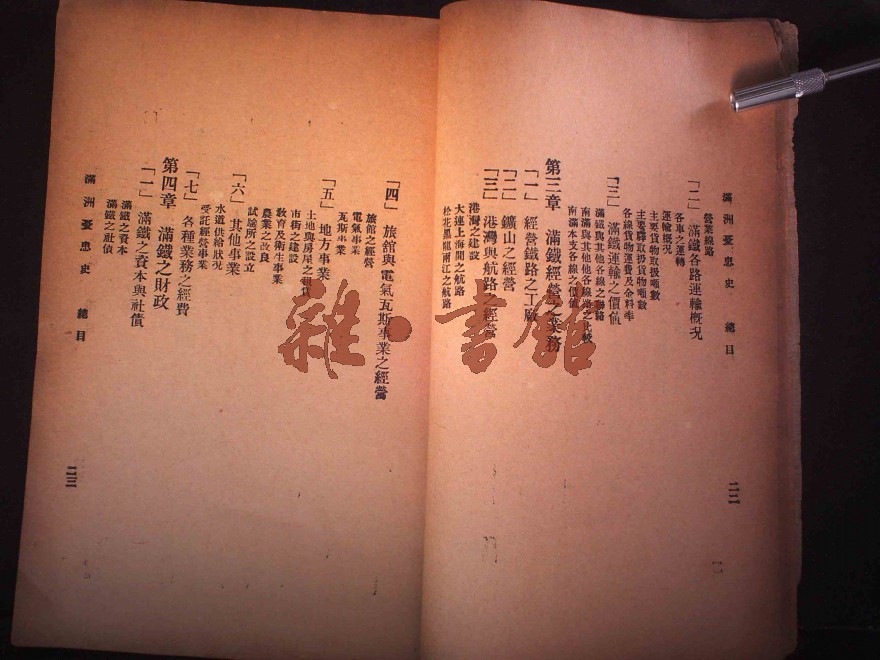 滿洲憂患史 總目
二二
「二」 滿鐵各路運輸概況
營業線路
各車之運轉
運輸概況
主要貨物取扱噸數
主要驛取扱貨物噸數
各線貨物運費及全料率
「三」 滿鐵運輸之價值
滿鐵與其他各線之聯絡
南滿與其他他各線路之比較
南滿本支各線之價值
第三章 滿鐵經營之業務
「一」 經營鐵路之工廠
「二」 鑛山之經營
「三」 港灣與航路之經營
港灣之建設
大連上海間之航路
松花黑龍兩江之航路
「四」 旅舘與電氣瓦斯事業之經營
旅舘之經營
電氣事業
瓦斯事業
「五」 地方事業
土地與房屋之租貸
市街之建設
教育及衛生事業
農業之改良
試驗所之設立
「六」 其他事業
水道供給狀况
受託經營事業
「七」 各種業務之經費
第四章 滿鐵之財政
「一」 滿鐵之資本與社債
滿鐵之資本
滿鐵之社債
滿洲憂患史 總目
二三
雜·書館